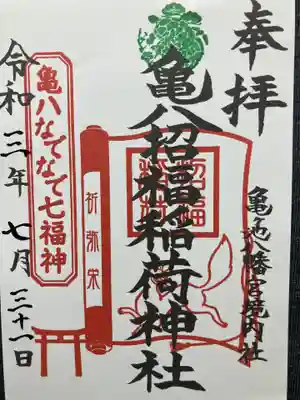 奉拝
亀ヶ池八幡宮境内社
亀八招福稲荷神社
招福
祈弥栄
亀八なでなで七福神
令和三年七月三十一日